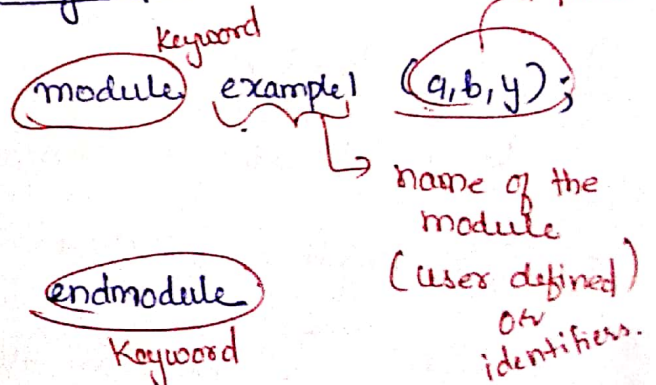 Keyword
module example1 (a,b,y);
name of the
module
(user defined)
or
identifiers.
endmodule
Keyword